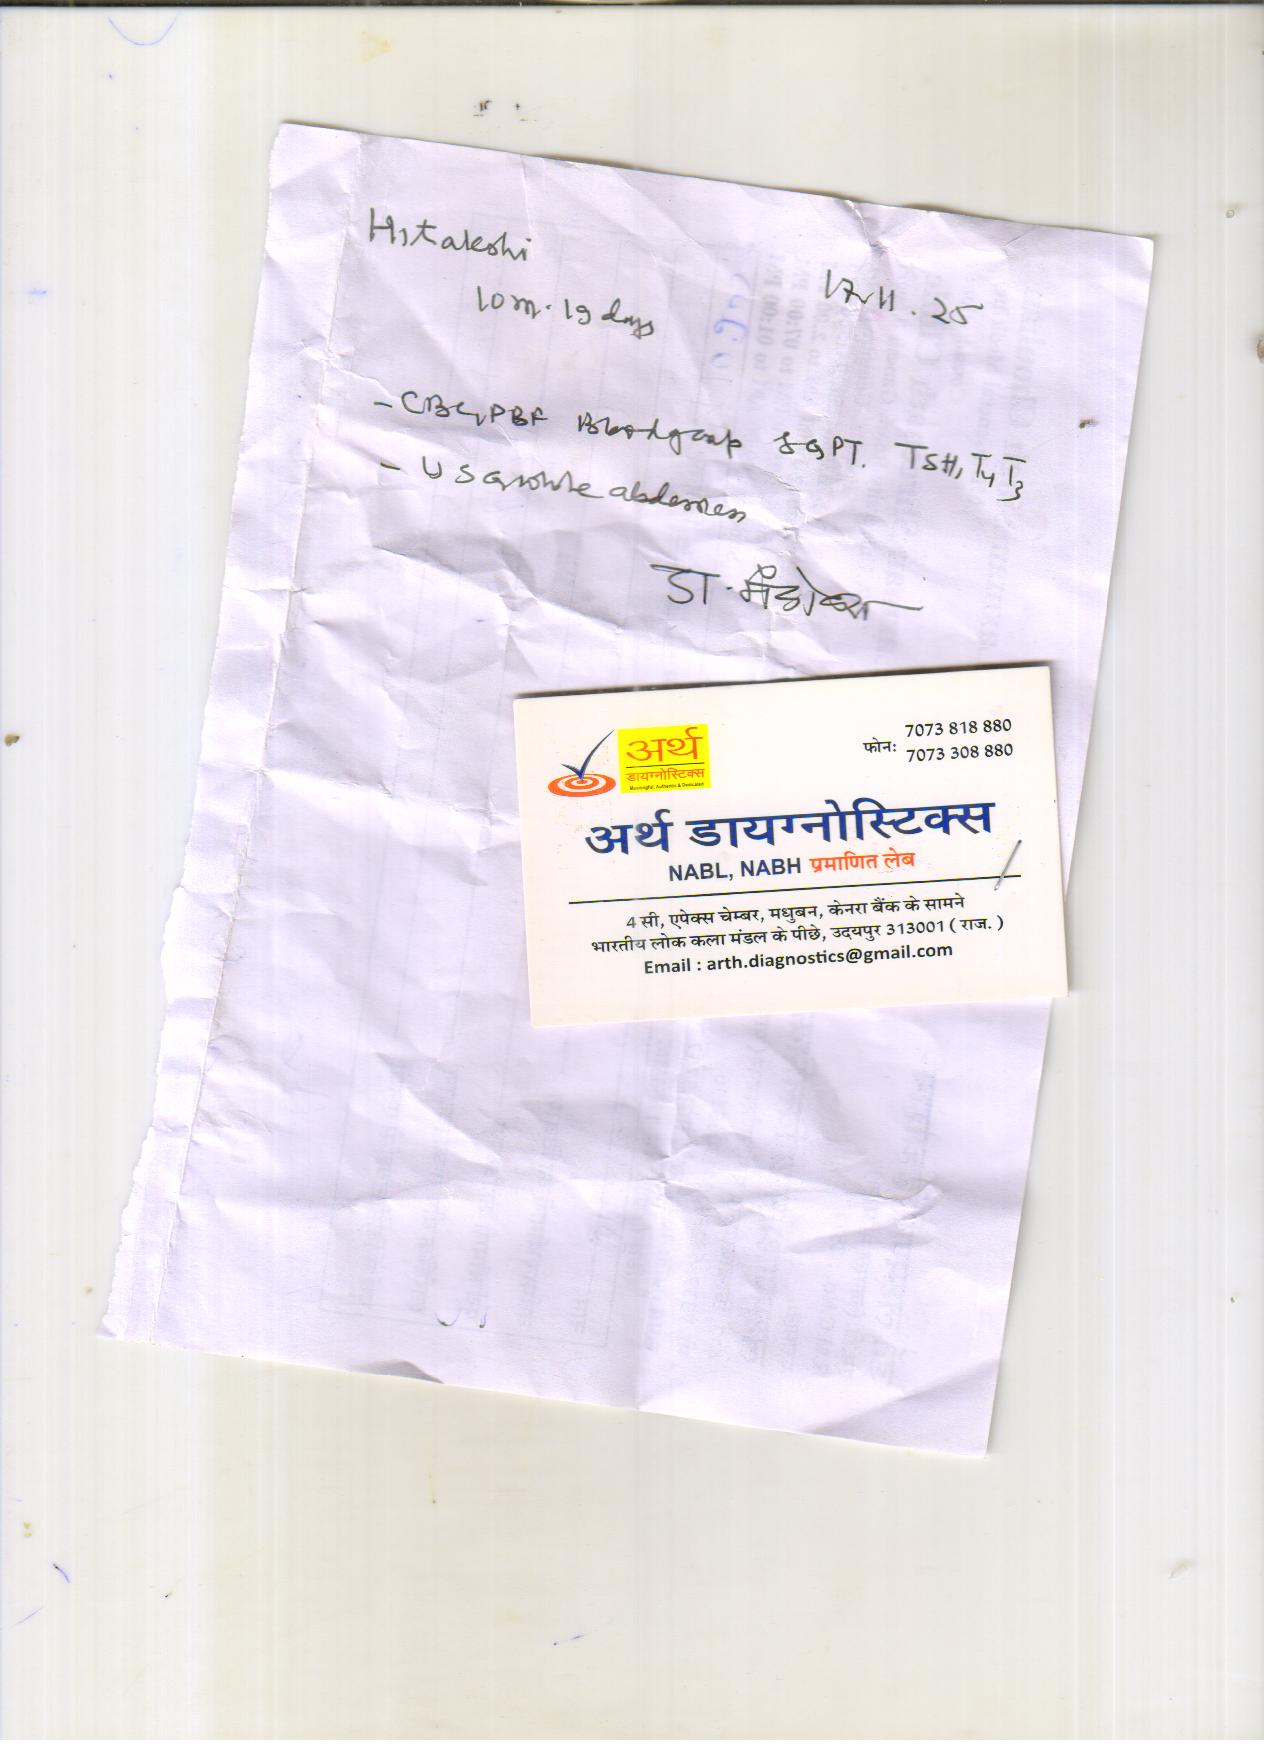 Hitakshi
10m. 19 days
17.11.25
- CBC, PBF Bloodgroup SGPT. TSH, T4 T3
- USG whole abdomen
डा.
अर्थ
डायग्नोस्टिक्स
Meaningful, Authentic & Dedicated
फोन: 7073 818 880
7073 308 880
अर्थ डायग्नोस्टिक्स
NABL, NABH प्रमाणित लेब
4 सी, एपेक्स चेम्बर, मधुबन, केनरा बैंक के सामने
भारतीय लोक कला मंडल के पीछे, उदयपुर 313001 ( राज. )
Email : arth.diagnostics@gmail.com